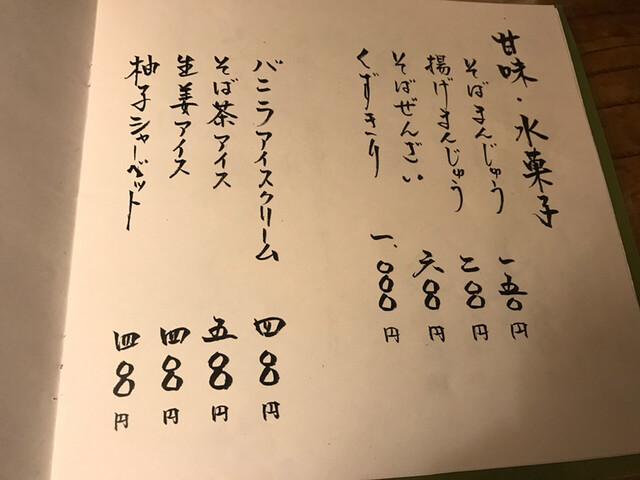 甘味・水菓子
そばまんじゅう 一五〇円
揚げまんじゅう 二〇〇円
そばぜんざい 六〇〇円
くずきり 一、〇〇〇円
バニラアイスクリーム 四〇〇円
そば茶アイス 五〇〇円
生姜アイス 四〇〇円
柚子シャーベット 四〇〇円